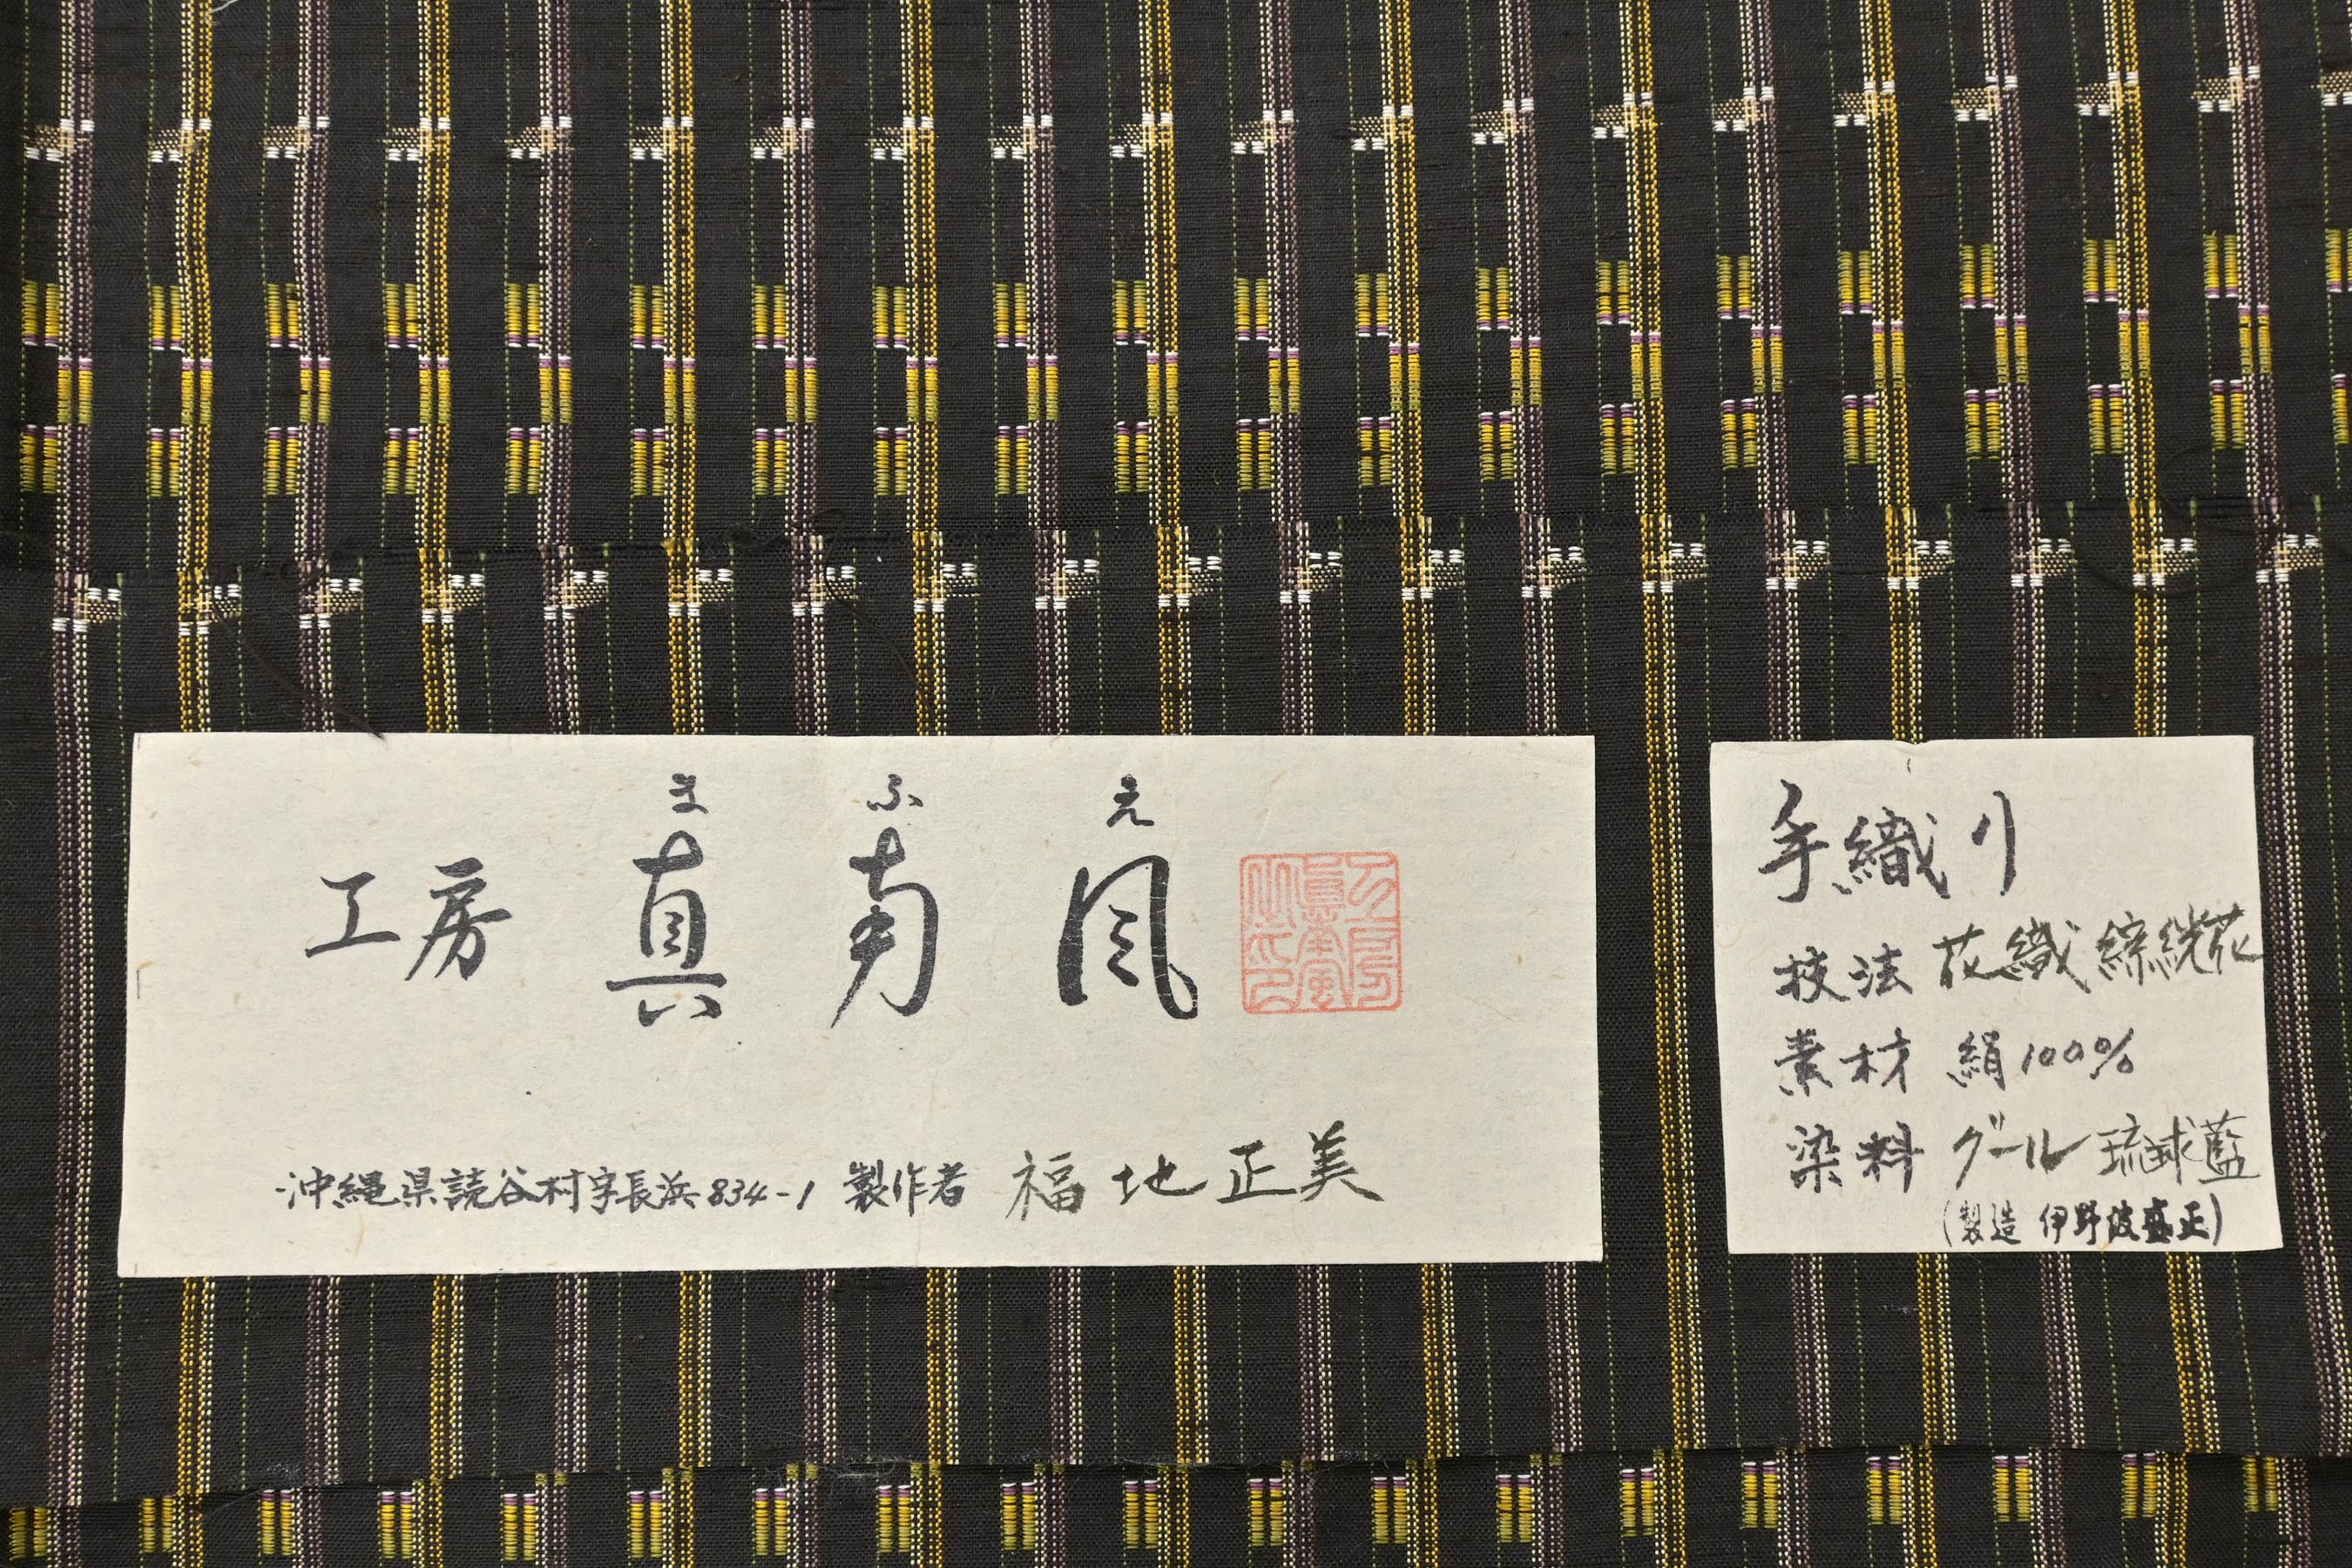 ま ふ え
工房 真南風
沖縄県読谷村字長浜834-1 製作者 福地正美
手織り
技法 花織 綜絖花
素材 絹100%
染料 グール 琉球藍
(製造 伊野波盛正)